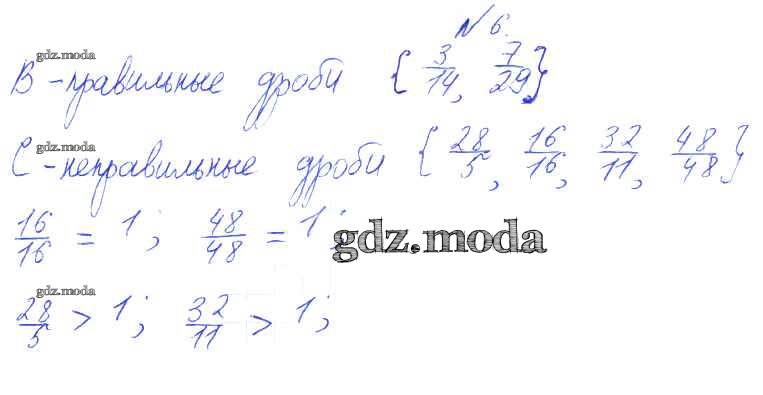 № 6.
gdz.moda
B - правильные дроби { 3/14, 7/29 }
gdz.moda
C - неправильные дроби { 28/5, 16/16, 32/11, 48/48 }
16/16 = 1; 48/48 = 1;
gdz.moda
gdz.moda
28/5 > 1; 32/11 > 1;